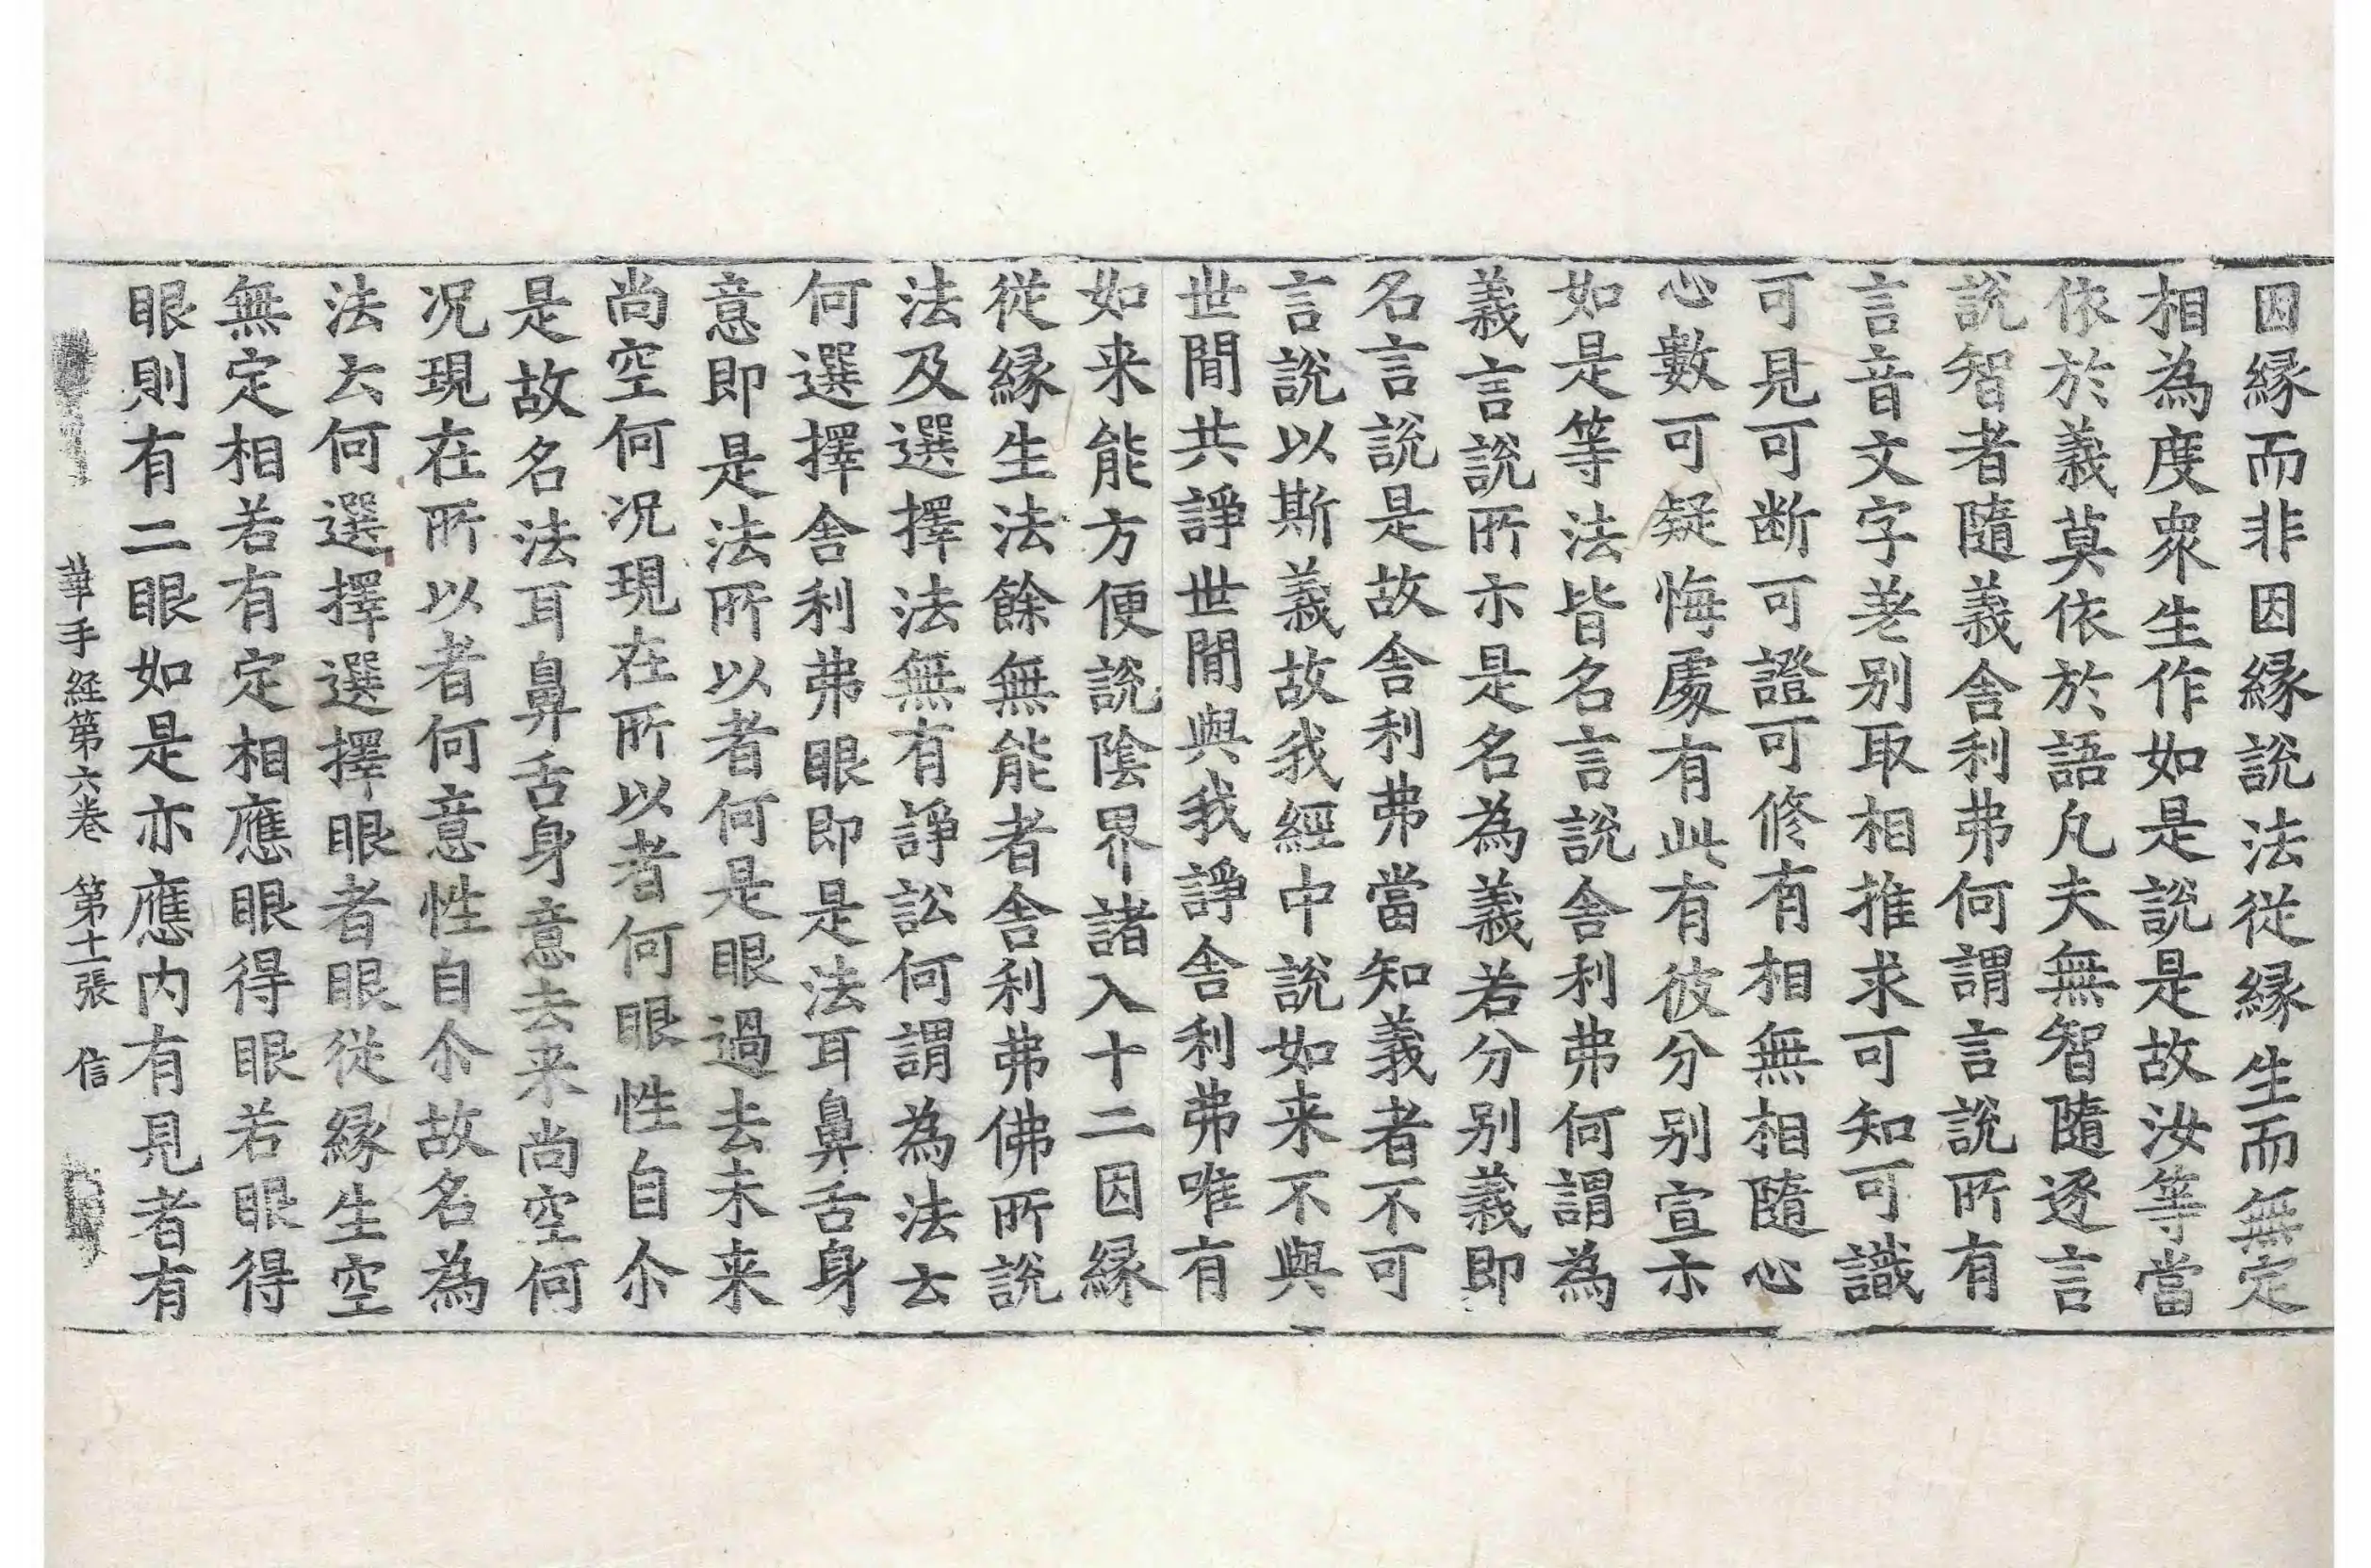 因縁而非因縁說法從縁生而無定
相為度衆生作如是說是故汝等當
依於義莫依於語凢夫無智隨逐言
說智者隨義舍利弗何謂言說所有
言音文字差别取相推求可知可識
可見可断可證可修有相無相隨心
心數可疑悔處有此有彼分别宣示
如是等法皆名言說舍利弗何謂為
義言說所示是名為義若分别義即
名言說是故舍利弗當知義者不可
言說以斯義故我經中說如来不與
世間共諍世間與我諍舍利弗唯有
如来能方便說陰界諸入十二因縁
從縁生法餘無能者舍利弗佛所說
法及選擇法無有諍訟何謂為法云
何選擇舍利弗眼即是法耳鼻舌身
意即是法所以者何是眼過去未来
尚空何况現在所以者何眼性自尒
是故名法耳鼻舌身意去来尚空何
况現在所以者何意性自尒故名為
法云何選擇選擇眼者眼從縁生空
無定相若有定相應眼得眼若眼得
眼則有二眼如是亦應内有見者有
華手経第六卷 第十一張 信